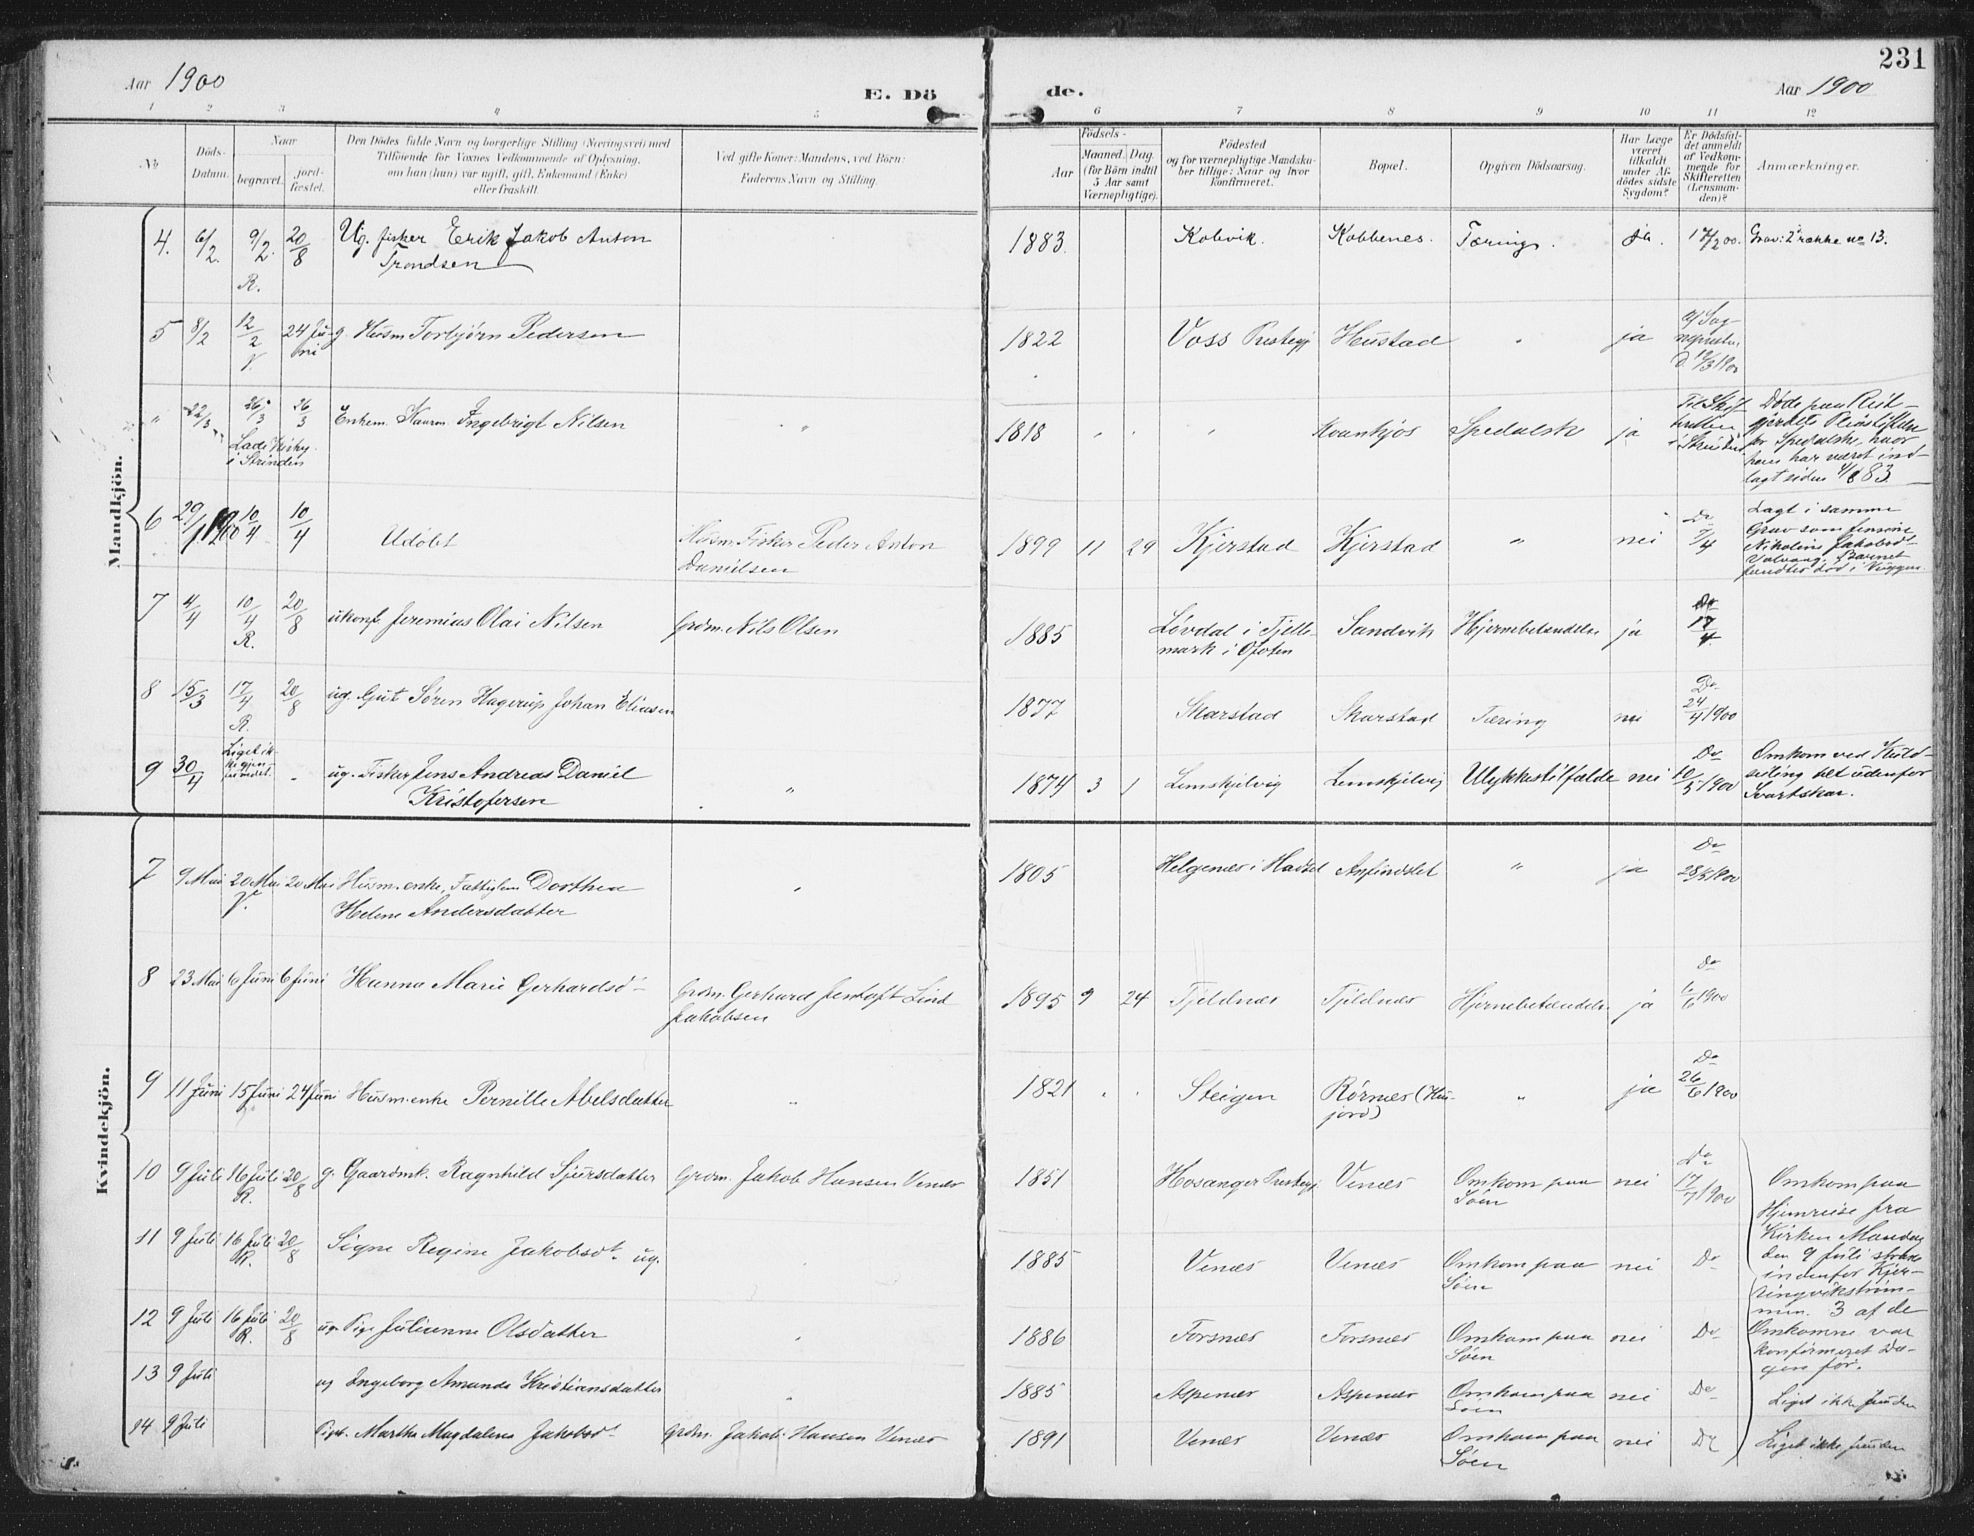 231
Aar 1900
E. Dö de.
Aar 1900
1 2 3 4 5 6 7 8 9 10 11 12
No
Döds-
Datum.
Naar
begravet.
jord-
fæstet.
Den Dödes fulde Navn og borgerlige Stilling (Næringsvei) med
Tilföiende for Voxnes Vedkommende af Oplysning,
om han (hun) var ugift, gift, Enkemand (Enke)
eller fraskilt.
Ved gifte Koner: Mandens, ved Börn:
Faderens Navn og Stilling.
Födsels-
Aar
Maaned. Dag.
(for Börn indtil
5 Aar samt
Værnepligtige).
Födested
og for værnepligtige Mandska-
ber tillige: Naar og hvor
konfirmeret.
Bopæl.
Opgiven Dödsaarsag.
Har Læge
været
tilkaldt
under Af-
dödes sidste
Sygdom?
Er Dödsfal-
det anmeldt
af Vedkom-
mende for
Skifteretten
(Lensman-
den)?
Anmærkninger.
Mandkjön.
4. 6/2. 9/2. 20/8 Ug. fisker Erik Jakob Anton 1883. Kobvik. Kobbenes. Tæring. Ja. 17/2 00. Grav: 2 række no 13.
R. Trondsen
5 8/2 12/2 24 Ju-ni g. Husm Torbjørn Pedersen 1822 Voss Prestegj Heustad " ja
" 22/3 26/3 26/3 Enkem. Ingebrigt Nilsen " 1818 " " " Kvankjos Spedalsk ja
Lade Kirke
i Strinden
Døde paa Reit-
gjerdets Pleiestiftelse
for Spedalske, hvor
hans har været ind-
lagt siden
6 29/1 1900 10/4 10/4 Udøbt Husm. Fisker Peder Anton 1899 11 29 Kjerstad Kjerstad " nei Do 7/4
Danielsen
Lagt i samme
Grav som
Nikoline Jakobsd
Barnet
fundtes død i Vuggen.
7 4/4 10/4 20/8 ukonf. Jeremias Olai Nilsen Grdm. Nils Olsen 1885 Løvdal i Fjelle- Sandvik Hjernebetændelse ja Do 17/4
R. mark i Ofoten
8 15/3 17/4 20/8 ug. Gut Søren Hagerup Johan Eliasen 1877 Skarstad Skarstad Tæring nei Do 24/4 1900
R.
9 30/4 Liget ik-
ke gjen-
fundet. " ug. Fisker Jens Andreas Daniel " 1874 3 1 Lemskjelvig Lemskjelvig Ulykkestilfælde nei Do 10/5 1900 Omkom ved Kuld-
Kristofersen seiling tet udenfor
Svartskar.
Kvindekjön.
7 9 Mai 20 Mai 20 Mai Husm. enke, Fattiglem Dorthea " 1805 Helgenæs i Hadsel Anfindslet " ja Do 28/5 1900
V. Helene Andersdatter
8 23 Mai 6 Juni 6 Juni Hanna Marie Gerhardsd- Grdm. Gerhard Jentoft Lind 1895 9 24 Tjeldnæs Tjeldnæs Hjernebetændelse ja Do 6/6 1900
Jakobsen
9 11 Juni 15 Juni 24 Juni Husm. enke Pernille Abelsdatter " 1821 " " Steigen Rørnæs (Hu- " ja Do 26/6 1900
jord)
10 9 Juli 16 Juli 20/8 g. Gaardmk. Ragnhild Sjursdatter Grdm. Jakob Hansen Venæs 1851 Hosanger Prestegj Venæs Omkom paa nei Do 17/7 1900
R. Søen
11 9 Juli 16 Juli 20/8 Signe Regine Jakobsdt. ug. 1885 Venæs Venæs Omkom paa nei Do
R. Søen
12 9 Juli 16 Juli 20/8 ug. Pige Julianne Olsdatter " 1886 Forsnæs Forsnæs Omkom paa nei Do
R. Søen
Omkom paa
Hjemreise fra
Kirken Mandag
den 9 Juli strax
indenfor Kjer-
ringvikstrøm-
men. 3 af de
Omkomne var
konfirmeret Da-
gen før.
13 9 Juli ug Ingeborg Amanda Kristiansdatter " 1885 Aspenæs Aspenæs Omkom paa nei Do Liget ikke funden
Søen
14 9 Juli Pige. Marthe Magdalena Jakobsdt Grdm. Jakob Hansen Venæs 1891 Venæs Venæs Omkom paa nei Do Liget ikke funden
Søen